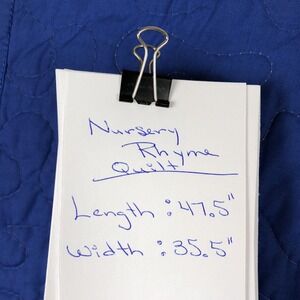 Nursery
Rhyme
Quilt
Length : 47.5"
Width : 35.5"